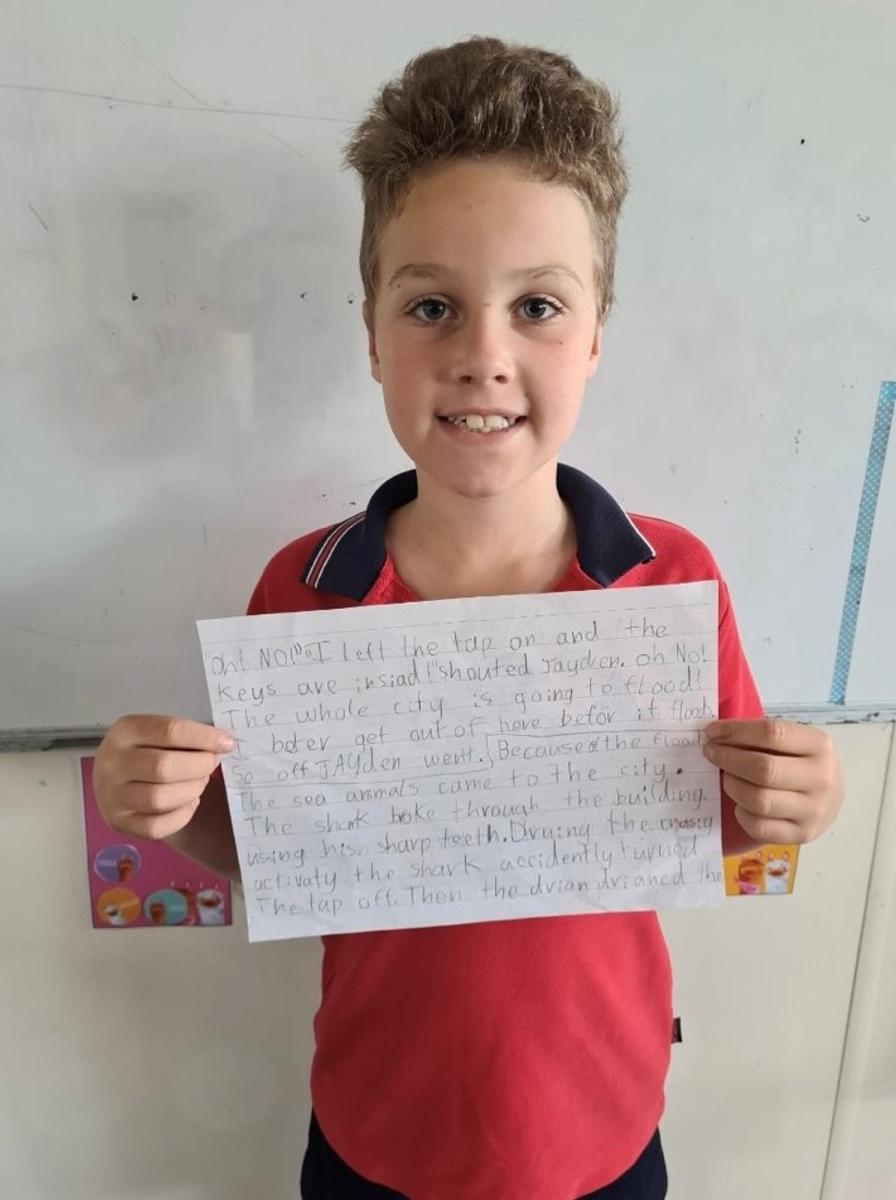 "Oh! NO!" "I left the tap on and the
keys are insiad!" shouted Jayden. Oh No!
The whole city is going to flood!
I beter get out of here befor it floods.
So off JAyden went. Because of the flood
The sea animals came to the city.
The shark boke through the building
using his sharp teeth. Druing the crasiy
activaty the shark accidently turned
The tap off. Then the drian drianed the